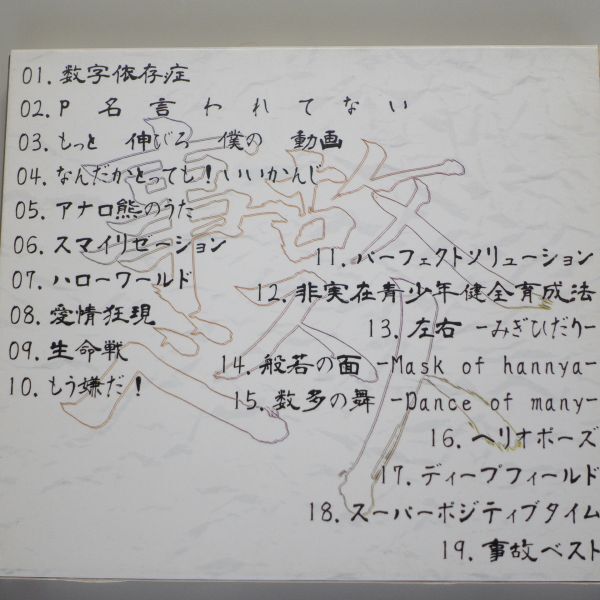 01. 数字依存症
02. P 名 言 わ れ て な い
03. もっと 伸びろ 僕の 動画
04. なんだかとっても!いいかんじ
05. アナロ熊のうた
06. スマイリゼーション
07. ハローワールド
08. 愛情狂現
09. 生命戦
10. もう嫌だ!
11. パーフェクトソリューション
12. 非実在青少年健全育成法
13. 左右 -みぎひだり-
14. 般若の面 -Mask of hannya-
15. 数多の舞 -Dance of many-
16. ヘリオポーズ
17. ディープフィールド
18. スーパーポジティブタイム
19. 事故ベスト
事故
ベスト